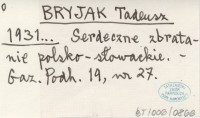 BRYJAK Tadeusz
1931... Serdeczne zbrata-
nie polsko-słowackie. -
Gaz. Podh. 19, nr 27.